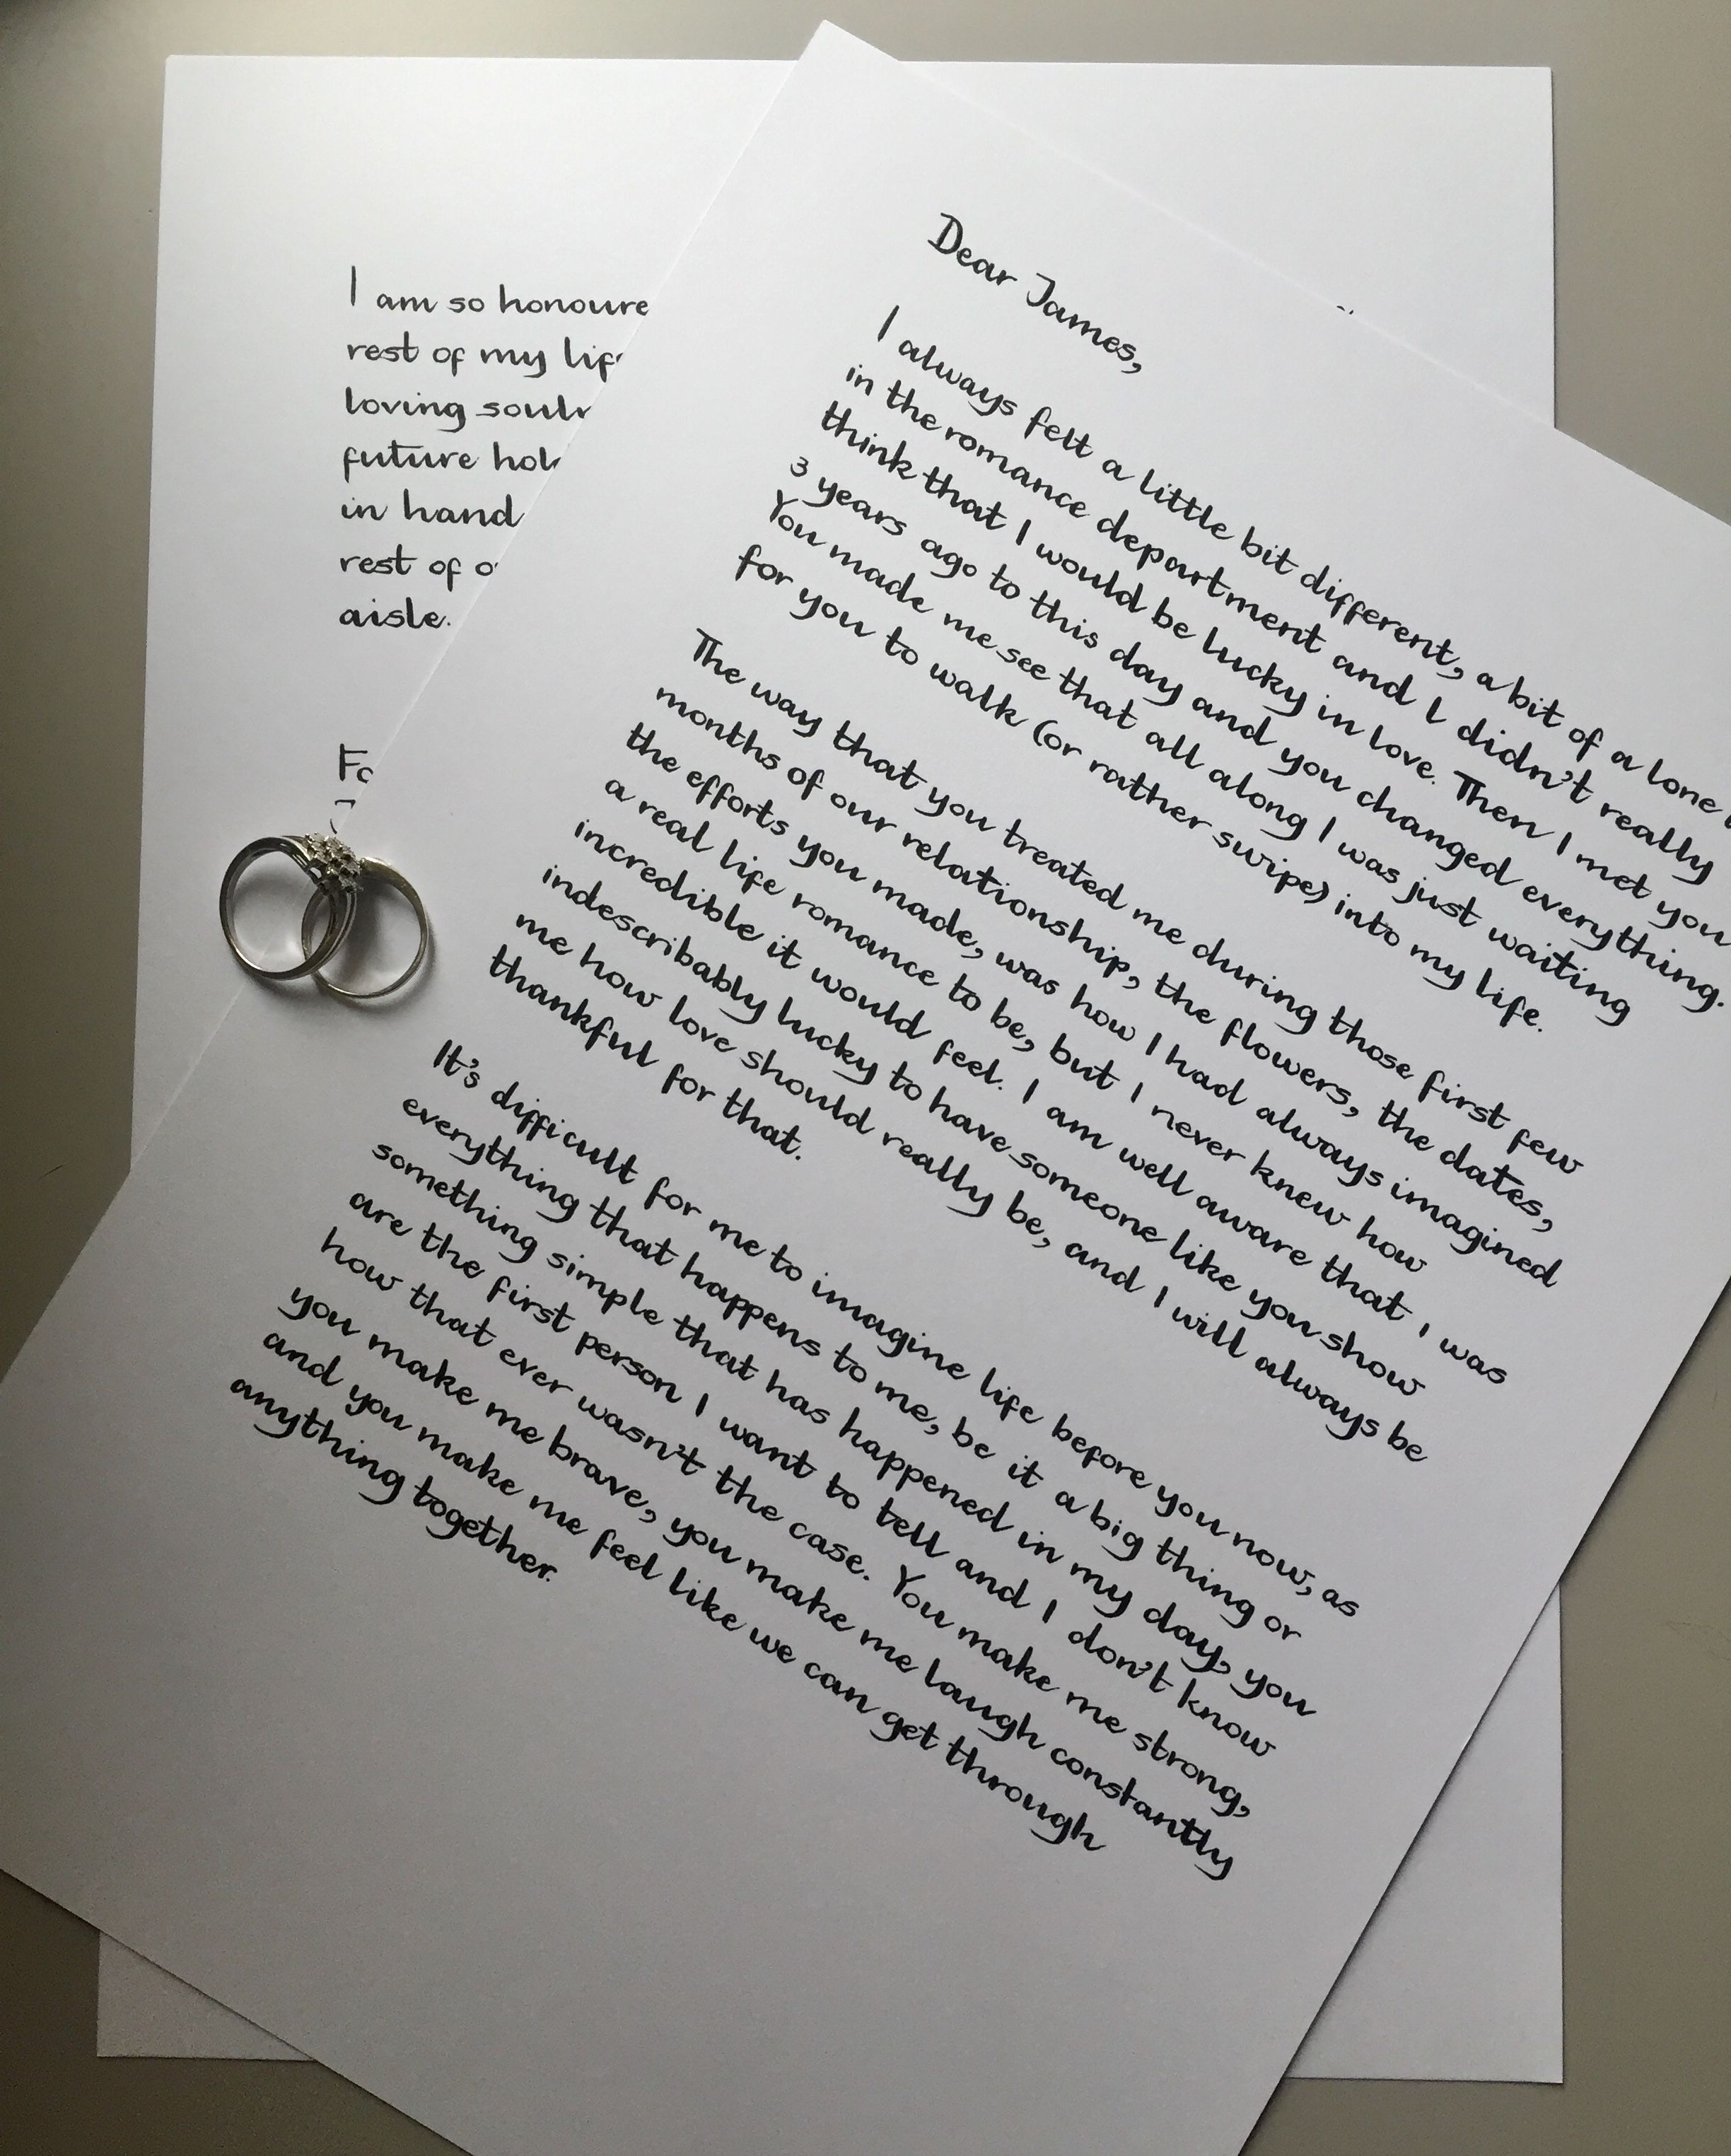 Dear James,
I always felt a little bit different, a bit of a lone
in the romance department and I didn't really
think that I would be lucky in love. Then I met you
3 years ago to this day and you changed everything.
You made me see that all along I was just waiting
for you to walk (or rather swipe) into my life.
The way that you treated me during those first few
months of our relationship, the flowers, the dates,
the efforts you made, was how I had always imagined
a real life romance to be, but I never knew how
incredible it would feel. I am well aware that I was
indescribably lucky to have someone like you show
me how love should really be, and I will always be
thankful for that.
It's difficult for me to imagine life before you now, as
everything that happens to me, be it a big thing or
something simple that has happened in my day, you
are the first person I want to tell and I don't know
how that ever wasn't the case. You make me strong,
you make me brave, you make me laugh constantly
and you make me feel like we can get through
anything together.
I am so honoure
rest of my lif
loving soul
future hol
in hand
rest of o
aisle.